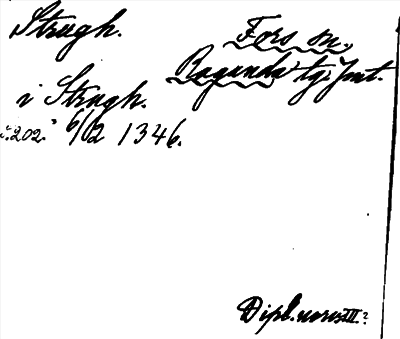 Strugh.
Fors sn.
Ragunda tg. Jmt.
i Strugh.
s.202. 6/02 1346.
Dipl. norv. III.2